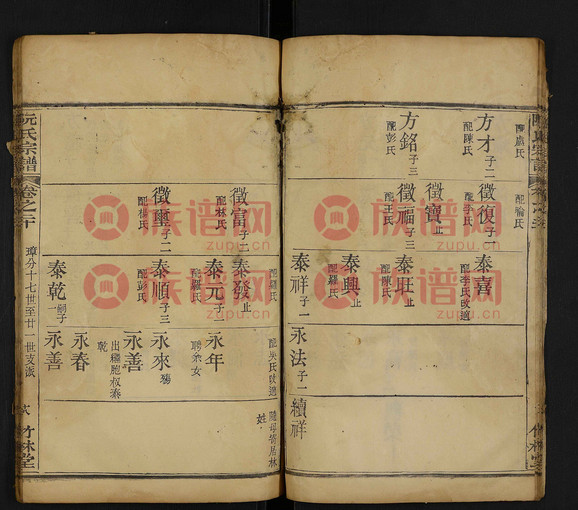 配盧氏
方才 子二
配陳氏
方銘 子三
配彭氏
配喻氏
徵復 子一
配李氏
徵寶 止
徵福 子三
配王氏
泰喜
配李氏改適
泰旺 止
配陳氏
泰興 止
配羅氏
泰祥 子一
永法 子一
續祥
徵富 子二
配林氏
徵璽 子二
配楊氏
配羅氏
泰發 止
泰元 子一
配羅氏
泰順 子三
配彭氏
泰乾 嗣子一
配吳氏改適
永年
聘余女
永來 殤
永善
出繼胞叔泰乾
永春
永善
隨母寄居林姓
阮氏宗譜
卷之二十
璋分十七世至廿一世支派
竹林堂
族谱网
www.zupu.cn